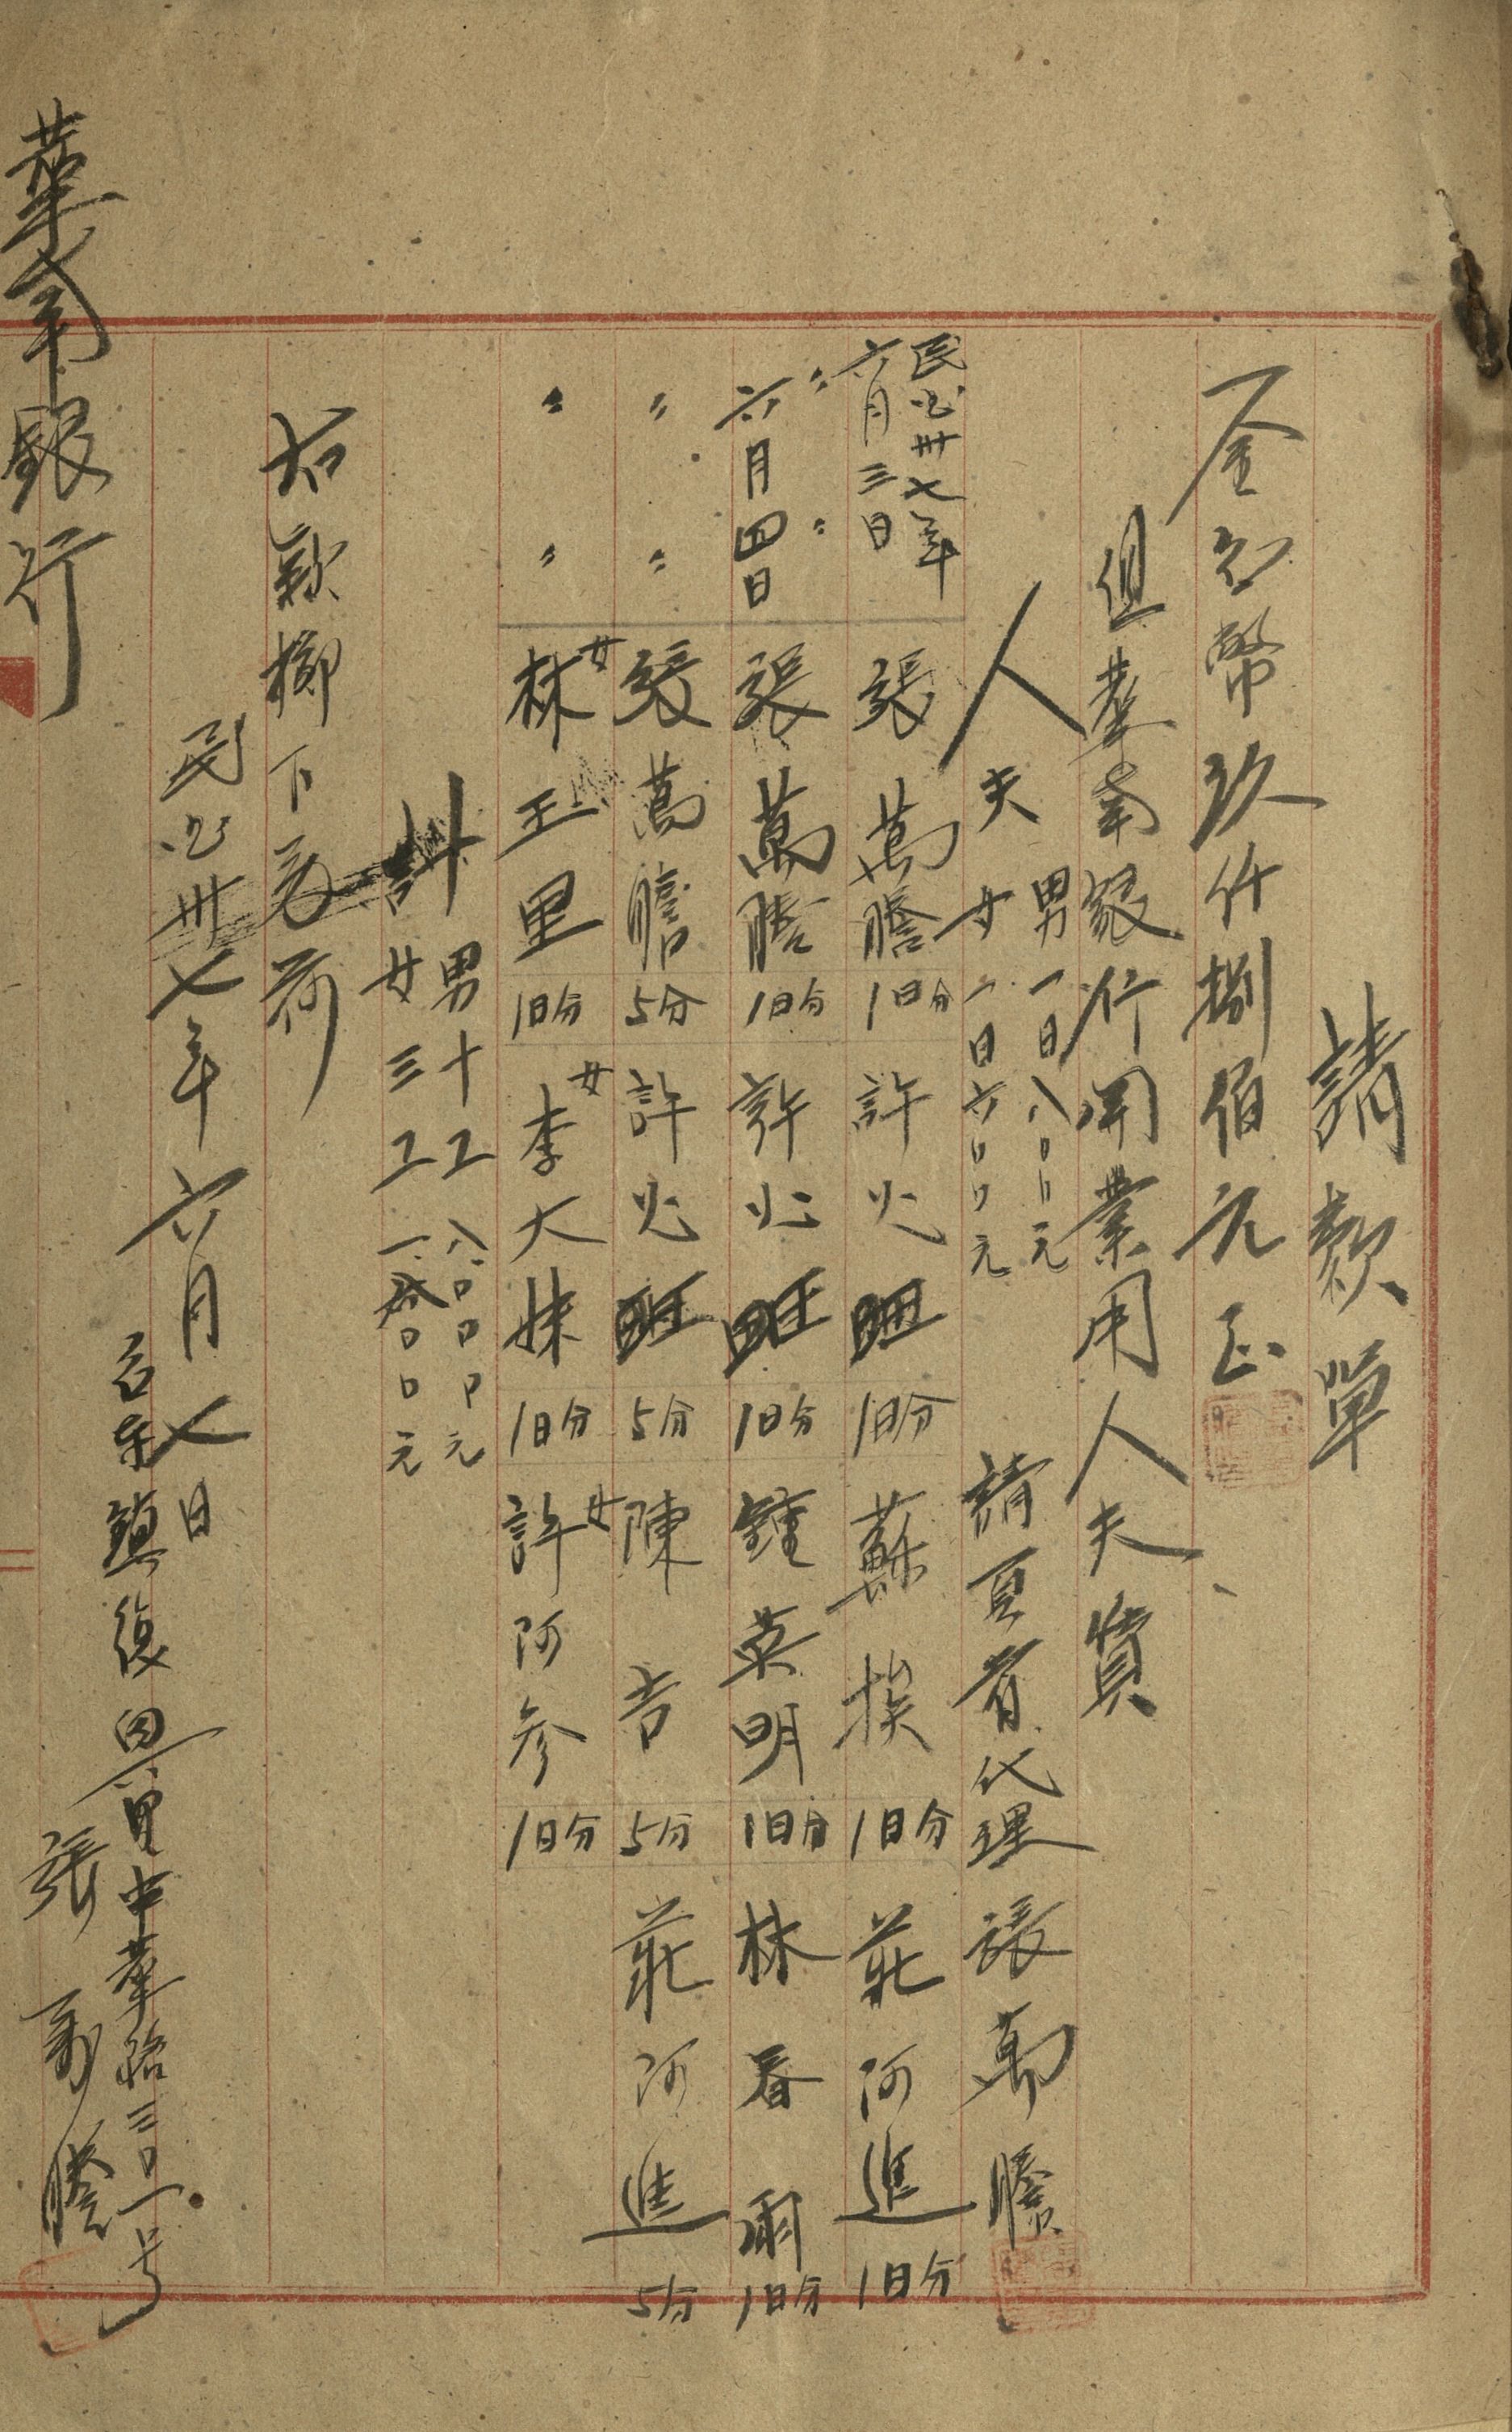 請款單
一金台幣玖仟捌佰元正
但華南銀行開業用人夫賃
人夫 男一日八〇〇元 女一日六〇〇元 請負者代理 張萬謄
民國卅七年六月三日 張萬謄 1日分 許火旺 1日分 蘇挨 1日分 莊阿進 1日分
〃〃六月四日 張萬謄 1日分 許火旺 1日分 鍾英明 1日分 林春雨 1日分
〃〃 張萬謄 5分 許火旺 5分 陳吉 5分 莊阿進 5分
〃〃 女 林王里 1日分 女 李大妹 1日分 女 許阿参 1日分
計 男十工 八.〇〇〇元 女三工 一.八〇〇元
右款擲下為荷
民國卅七年六月七日
台東鎮復興里中華路三〇一号
張萬謄
華南銀行